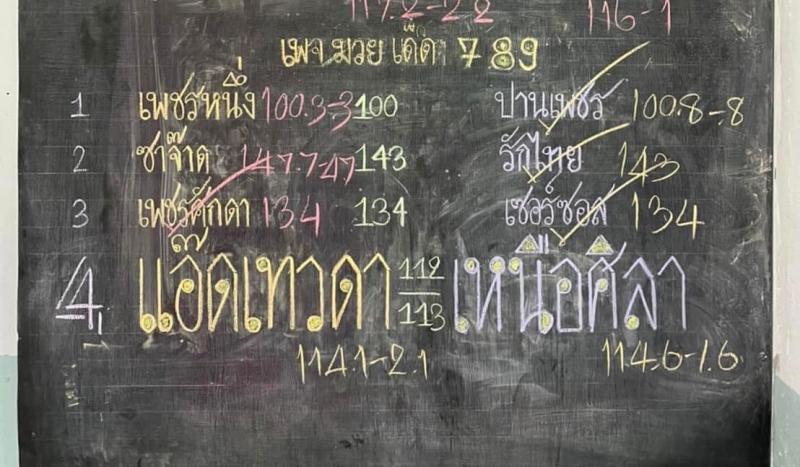 117.2-2.2 116-1
เพจ มวย เด็ด 789
1 เพชรหนึ่ง 100.3-.3 100 ปานเพชร 100.8-.8
2 ซาจ๊าด 147.7-47 143 รักไทย 143
3 เพชรศักดา 134 134 เชอร์ซอส 134
4 แอ๊ดเทวดา 112 เหนือศิลา
113
114.1-2.1 114.6-1.6